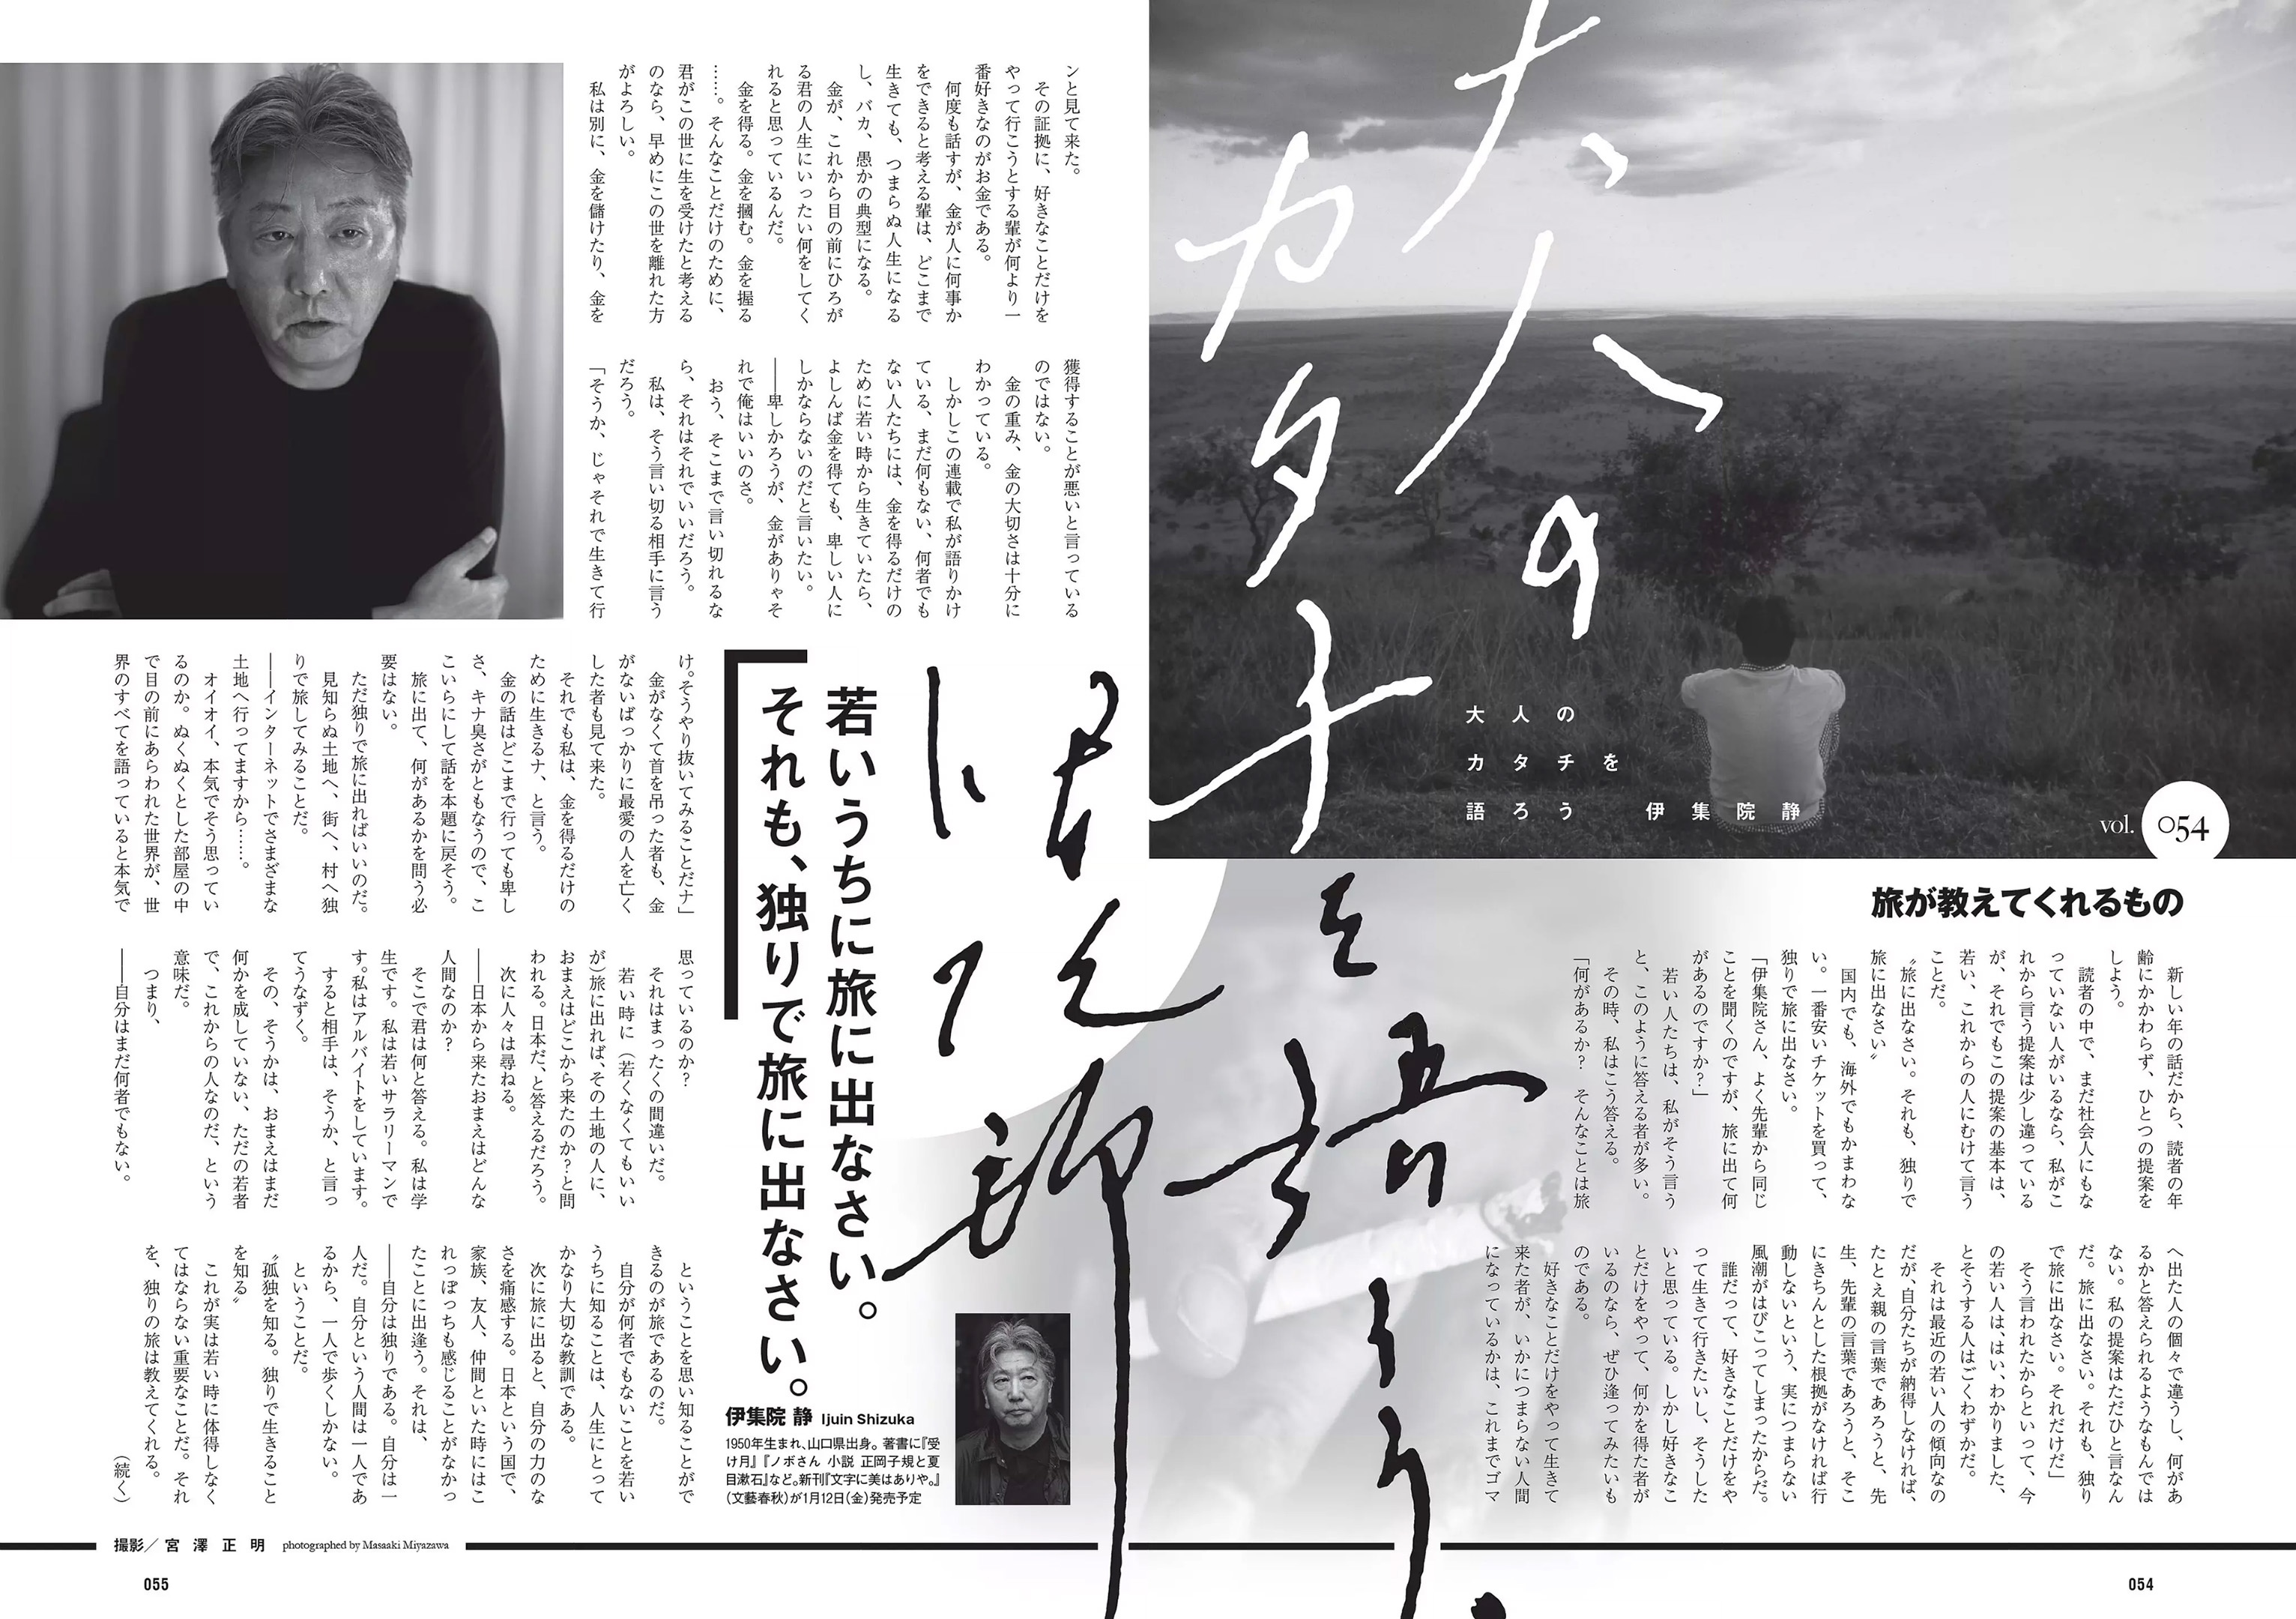 大人の
カタチ
を
語ろう。
伊集院静
大人の
カタチを
語ろう　伊集院静
vol. 054
旅が教えてくれるもの
　新しい年の話だから、読者の年
齢にかかわらず、ひとつの提案を
しよう。
　読者の中で、まだ社会人にもな
っていない人がいるなら、私がこ
れから言う提案は少し違っている
が、それでもこの提案の基本は、
若い、これからの人にむけて言う
ことだ。
〝旅に出なさい。それも、独りで
旅に出なさい〟
　国内でも、海外でもかまわな
い。一番安いチケットを買って、
独りで旅に出なさい。
「伊集院さん、よく先輩から同じ
ことを聞くのですが、旅に出て何
があるのですか？」
　若い人たちは、私がそう言う
と、このように答える者が多い。
　その時、私はこう答える。
「何があるか？　そんなことは旅
へ出た人の個々で違うし、何があ
るかと答えられるようなもんでは
ない。私の提案はただひと言なん
だ。旅に出なさい。それも、独り
で旅に出なさい。それだけだ」
　そう言われたからといって、今
の若い人は、はい、わかりました、
とそうする人はごくわずかだ。
　それは最近の若い人の傾向なの
だが、自分たちが納得しなければ、
たとえ親の言葉であろうと、先
生、先輩の言葉であろうと、そこ
にきちんとした根拠がなければ行
動しないという、実につまらない
風潮がはびこってしまったからだ。
　誰だって、好きなことだけをや
って生きて行きたいし、そうした
いと思っている。しかし好きなこ
とだけをやって、何かを得た者が
いるのなら、ぜひ逢ってみたいも
のである。
　好きなことだけをやって生きて
来た者が、いかにつまらない人間
になっているかは、これまでゴマ
ンと見て来た。
　その証拠に、好きなことだけを
やって行こうとする輩が何より一
番好きなのがお金である。
　何度も話すが、金が人に何事か
をできると考える輩は、どこまで
生きても、つまらぬ人生になる
し、バカ、愚かの典型になる。
　金が、これから目の前にひろが
る君の人生にいったい何をしてく
れると思っているんだ。
　金を得る。金を摑む。金を握る
……。そんなことだけのために、
君がこの世に生を受けたと考える
のなら、早めにこの世を離れた方
がよろしい。
　私は別に、金を儲けたり、金を
獲得することが悪いと言っている
のではない。
　金の重み、金の大切さは十分に
わかっている。
　しかしこの連載で私が語りかけ
ている、まだ何もない、何者でも
ない人たちには、金を得るだけの
ために若い時から生きていたら、
よしんば金を得ても、卑しい人に
しかならないのだと言いたい。
――卑しかろうが、金がありゃそ
れで俺はいいのさ。
　おう、そこまで言い切れるな
ら、それはそれでいいだろう。
　私は、そう言い切る相手に言う
だろう。
「そうか、じゃそれで生きて行
け。そうやり抜いてみることだナ」
　金がなくて首を吊った者も、金
がないばっかりに最愛の人を亡く
した者も見て来た。
　それでも私は、金を得るだけの
ために生きるナ、と言う。
　金の話はどこまで行っても卑し
さ、キナ臭さがともなうので、こ
こいらにして話を本題に戻そう。
　旅に出て、何があるかを問う必
要はない。
　ただ独りで旅に出ればいいのだ。
　見知らぬ土地へ、街へ、村へ独
りで旅してみることだ。
――インターネットでさまざまな
土地へ行ってますから……。
　オイオイ、本気でそう思ってい
るのか。ぬくぬくとした部屋の中
で目の前にあらわれた世界が、世
界のすべてを語っていると本気で
思っているのか？
　それはまったくの間違いだ。
　若い時に（若くなくてもいい
が）旅に出れば、その土地の人に、
おまえはどこから来たのか？と問
われる。日本だ、と答えるだろう。
　次に人々は尋ねる。
――日本から来たおまえはどんな
人間なのか？
　そこで君は何と答える。私は学
生です。私は若いサラリーマンで
す。私はアルバイトをしています。
　すると相手は、そうか、と言っ
てうなずく。
　その、そうかは、おまえはまだ
何かを成していない、ただの若者
で、これからの人なのだ、という
意味だ。
　つまり、
――自分はまだ何者でもない。
　ということを思い知ることがで
きるのが旅であるのだ。
　自分が何者でもないことを若い
うちに知ることは、人生にとって
かなり大切な教訓である。
　次に旅に出ると、自分の力のな
さを痛感する。日本という国で、
家族、友人、仲間といた時にはこ
れっぽっちも感じることがなかっ
たことに出逢う。それは、
――自分は独りである。自分は一
人だ。自分という人間は一人であ
るから、一人で歩くしかない。
　ということだ。
〝孤独を知る。独りで生きること
を知る〟
　これが実は若い時に体得しなく
てはならない重要なことだ。それ
を、独りの旅は教えてくれる。
（続く）
「若いうちに旅に出なさい。
それも、独りで旅に出なさい。
伊集院 静 Ijuin Shizuka
1950年生まれ、山口県出身。著書に『受
け月』『ノボさん 小説 正岡子規と夏
目漱石』など。新刊『文字に美はありや。』
（文藝春秋）が1月12日（金）発売予定
撮影／宮澤正明 photographed by Masaaki Miyazawa
055
054